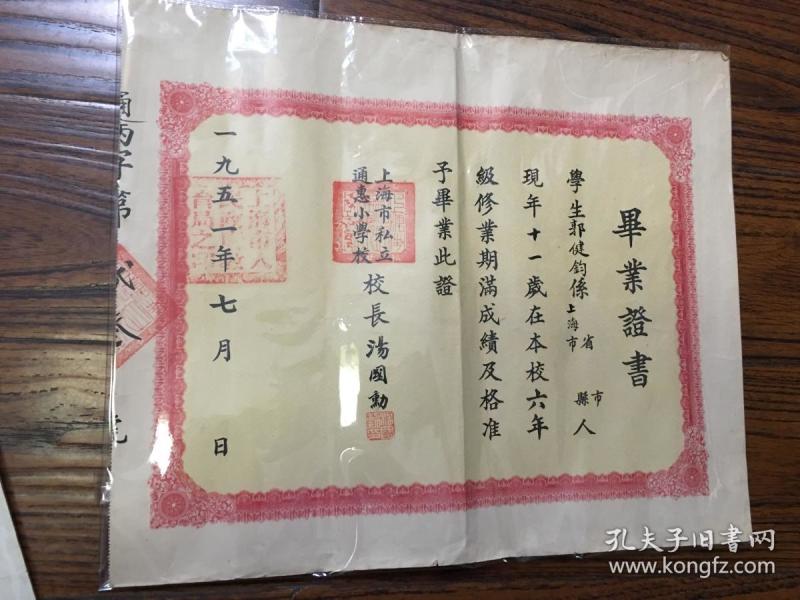 畢業證書
學生郭健鈞係上海市省市縣人
現年十一歲在本校六年
級修業期滿成績及格准
予畢業此證
上海市私立
通惠小學校
校長湯國勳
一九五一年七月日
通丙字第貳叁號
孔夫子旧书网
www.kongfz.com